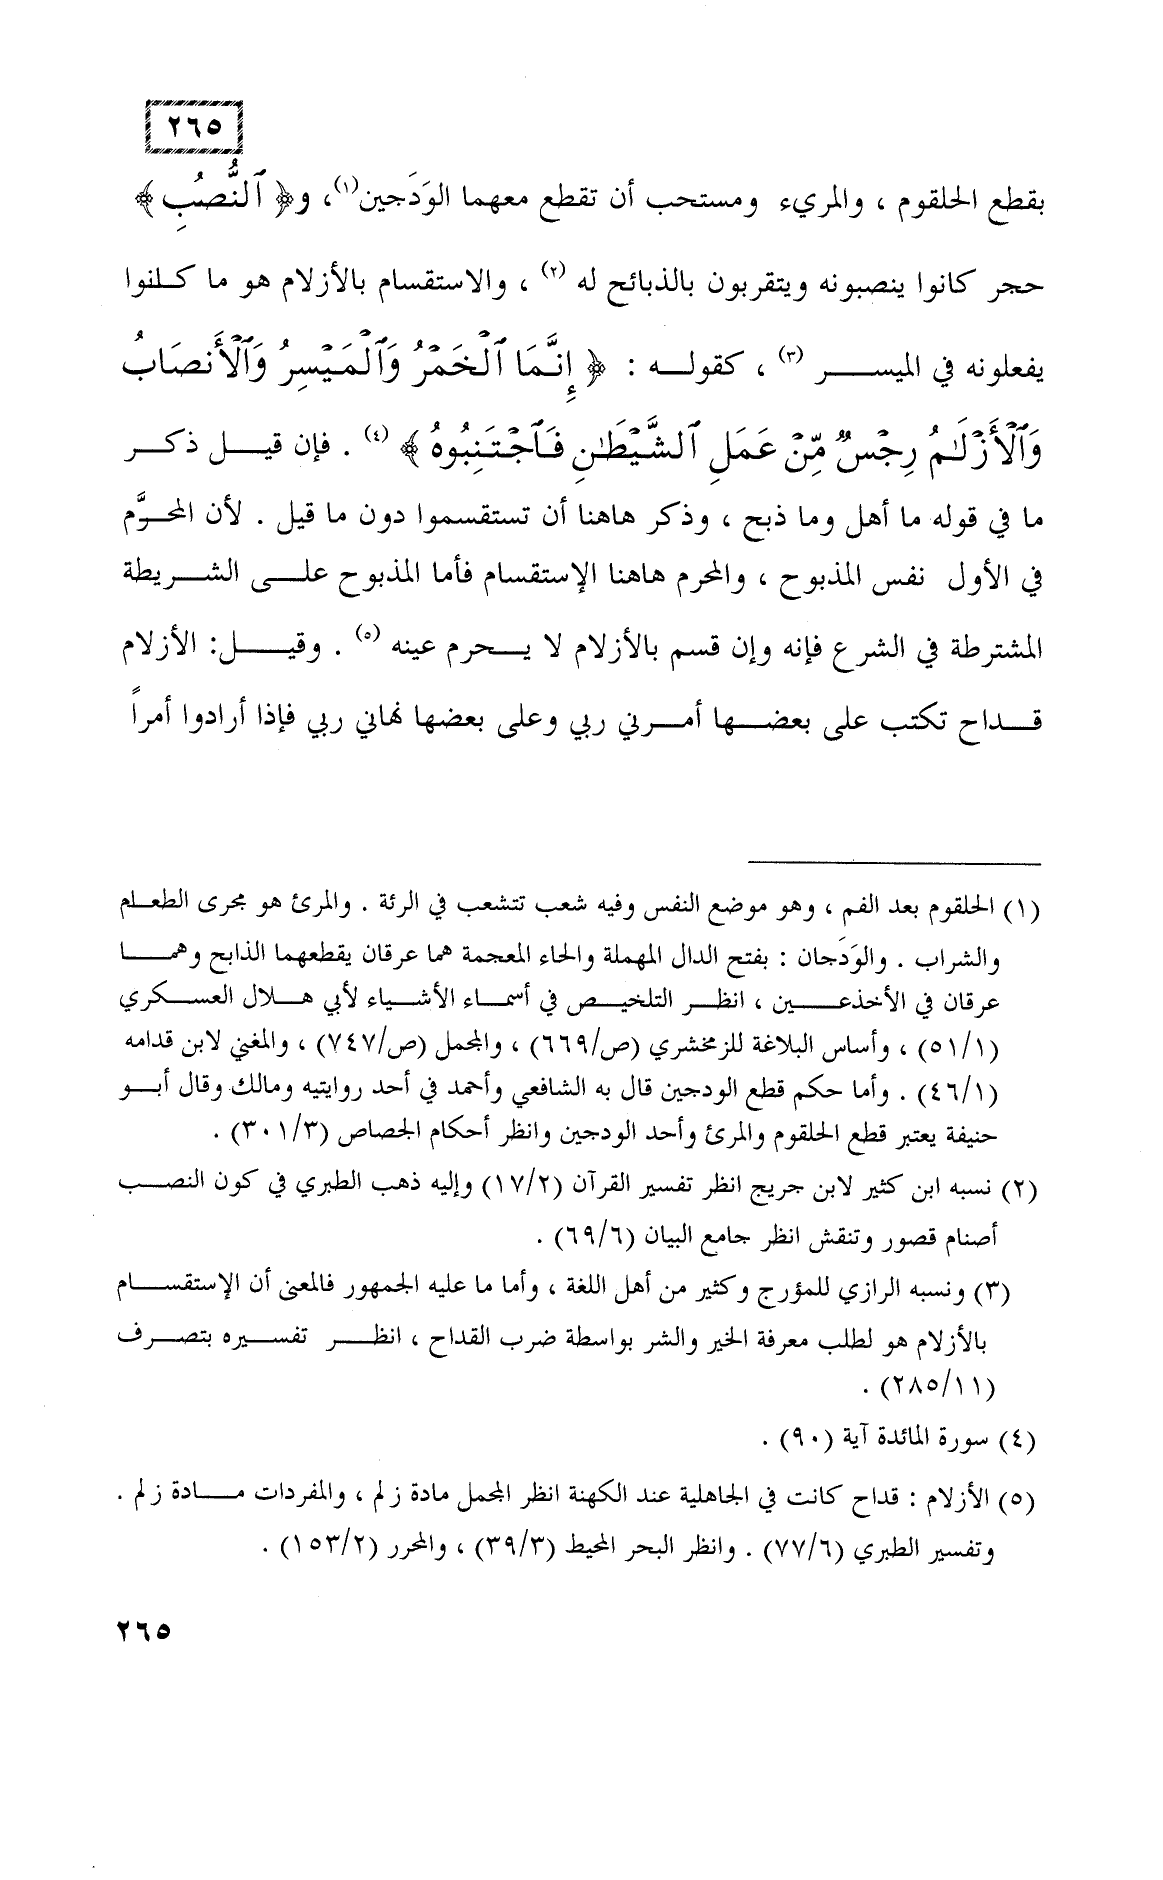 ٢٦٥
بقطع الحلقوم ، والمريء ومستحب أن تقطع معهما الوَدَجين(١)، و﴿ ٱلنُّصُبِ ﴾
حجر كانوا ينصبونه ويتقربون بالذبائح له (٢) ، والاستقسام بالأزلام هو ما كـلنوا
يفعلونه في الميســـر (٣) ، كقولـه : ﴿ إِنَّمَا ٱلْخَمْرُ وَٱلْمَيْسِرُ وَٱلْأَنصَابُ
وَٱلْأَزْلَـٰمُ رِجْسٌ مِّنْ عَمَلِ ٱلشَّيْطَـٰنِ فَٱجْتَنِبُوهُ ﴾ (٤) . فإن قيـل ذكـر
ما في قوله ما أهل وما ذبح ، وذكر هاهنا أن تستقسموا دون ما قيل . لأن المحرَّم
في الأول نفس المذبوح ، والمحرم هاهنا الإستقسام فأما المذبوح علـى الشـريطة
المشترطة في الشرع فإنه وإن قسم بالأزلام لا يـحرم عينه (٥) . وقيـــل: الأزلام
قـداح تكتب على بعضـها أمـرني ربي وعلى بعضها نهاني ربي فإذا أرادوا أمراً
(١) الحلقوم بعد الفم ، وهو موضع النفس وفيه شعب تتشعب في الرئة . والمرئ هو مجرى الطعـلم
والشراب . والوَدَجان : بفتح الدال المهملة والحاء المعجمة هما عرقان يقطعهما الذابح وهمـا
عرقان في الأخذعـــين ، انظـر التلخيـص في أسمـاء الأشـياء لأبي هـلال العسـكري
(٥١/١) ، وأساس البلاغة للزمخشري (ص/٦٦٩) ، والمجمل (ص/٧٤٧) ، والمغني لابن قدامه
(٤٦/١) . وأما حكم قطع الودجين قال به الشافعي وأحمد في أحد روايتيه ومالك وقال أبـو
حنيفة يعتبر قطع الحلقوم والمرئ وأحد الودجين وانظر أحكام الجصاص (٣٠١/٣) .
(٢) نسبه ابن كثير لابن جريج انظر تفسير القرآن (١٧/٢) وإليه ذهب الطبري في كون النصـب
أصنام قصور وتنقش انظر جامع البيان (٦٩/٦) .
(٣) ونسبه الرازي للمؤرج وكثير من أهل اللغة ، وأما ما عليه الجمهور فالمعنى أن الإستقسـام
بالأزلام هو لطلب معرفة الخير والشر بواسطة ضرب القداح ، انظـر تفسـيره بتصـرف
(٢٨٥/١١) .
(٤) سورة المائدة آية (٩٠) .
(٥) الأزلام : قداح كانت في الجاهلية عند الكهنة انظر المجمل مادة زلم ، والمفردات مـادة زلم .
وتفسير الطبري (٧٧/٦) . وانظر البحر المحيط (٣٩/٣) ، والمحرر (١٥٣/٢) .
٢٦٥